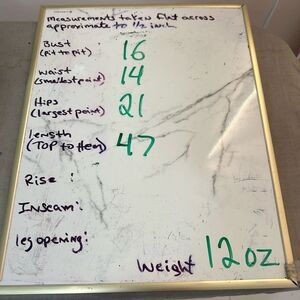 Measurements taken flat across
approximate to 1/2 inch
Bust : 16
(Pit to Pit)
Waist : 14
(smallest point)
Hips : 21
(largest point)
Length : 47
(TOP to Hem)
Rise :
Inseam :
leg opening :
Weight 12 oz